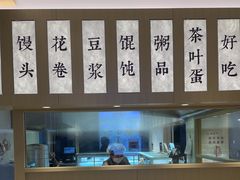 馒头
花卷
豆浆
馄饨
粥品
茶叶蛋
好吃